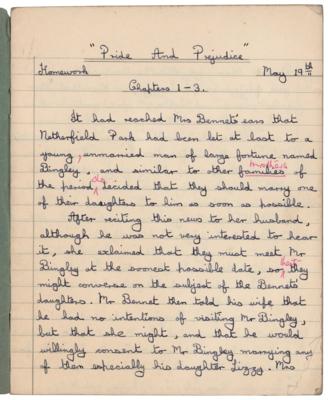 "Pride And Prejudice"
Homework May 19th
Chapters 1-3.
It had reached Mrs Bennet's ears that
Netherfield Park had been let at last to a
young, unmarried man of large fortune named
mothers
Bingley, and similar to other families of
do
the period, decided that they should marry one
of their daughters to him as soon as possible.
After reciting this news to her husband,
although he was not very interested to hear
it, she explained that they must meet Mr
that
Bingley at the soonest possible date, so they
might converse on the subject of the Bennets
daughters. Mr Bennet then told his wife that
he had no intentions of visiting Mr Bingley,
but that she might, and that he would
willingly consent to Mr Bingley marrying any
of them especially his daughter Lizzy. Mrs